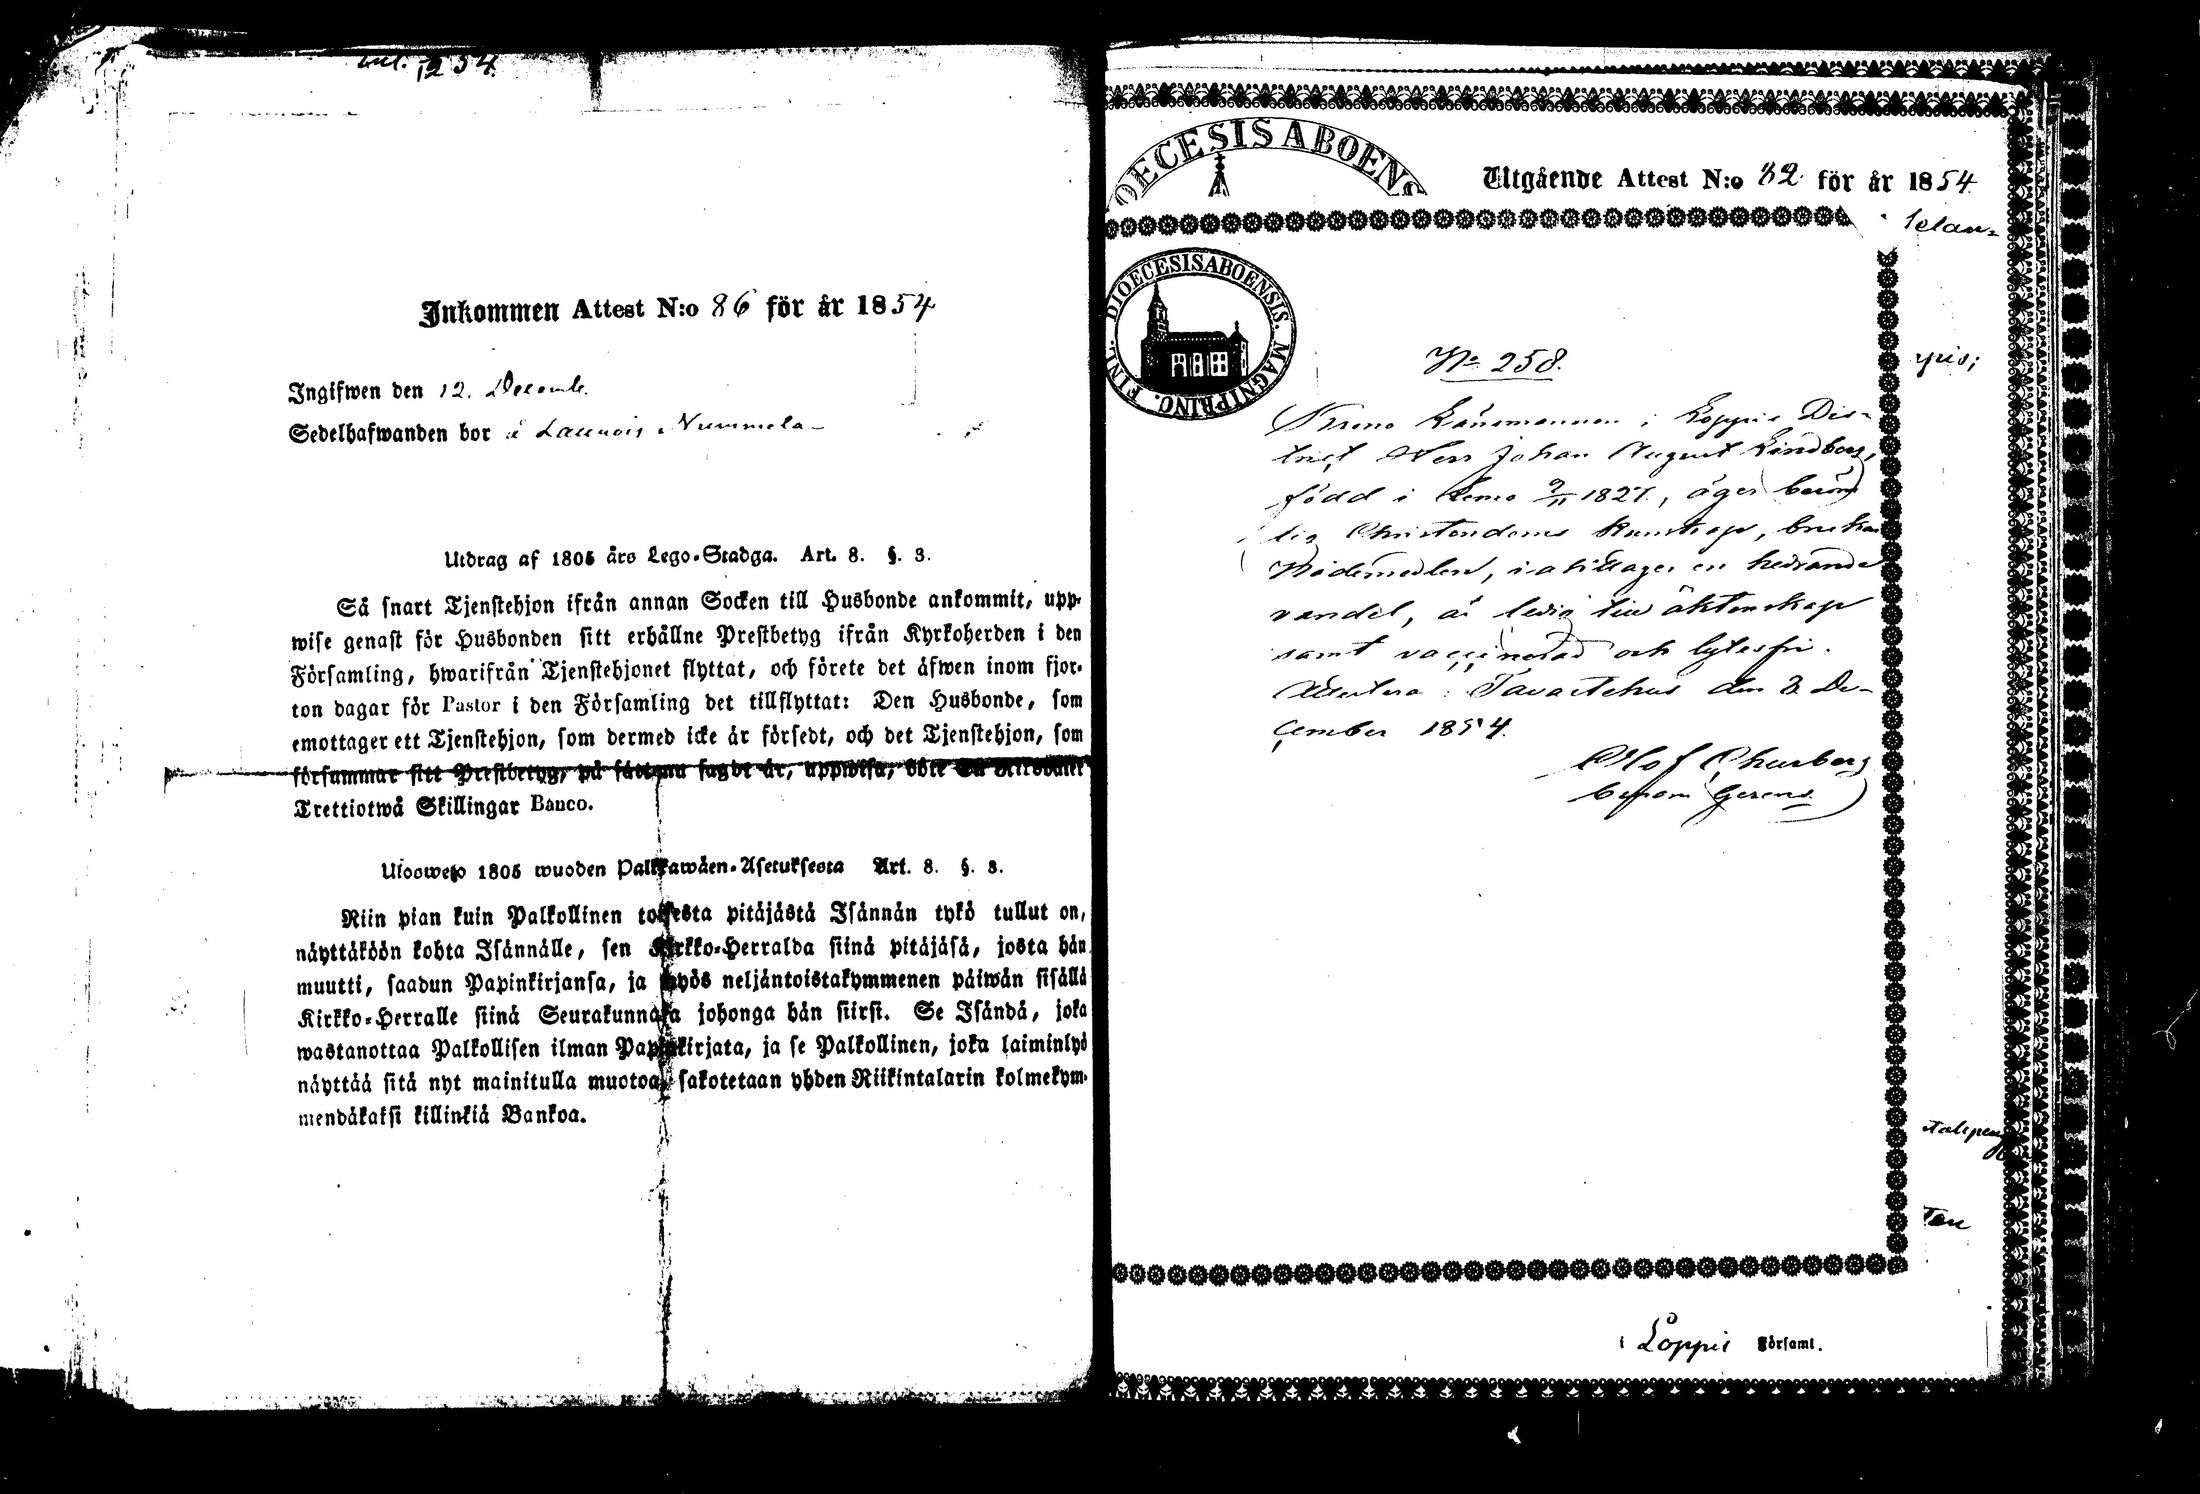 1254.
Inkommen Attest N:o 86 för år 1854
Ingifwen den 12. Decemb.
Sedelhafwanden bor å Launois Nummela
Utdrag af 1805 års Lego-Stadga. Art. 8. §. 3.
Så snart Tjenstehjon ifrån annan Socken till Husbonde ankommit, upp-
wise genast för Husbonden sitt erhållne Prestbetyg ifrån Kyrkoherden i den
Församling, hwarifrån Tjenstehjonet flyttat, och förete det äfwen inom fjor-
ton dagar för Pastor i den Församling det tillflyttat: Den Husbonde, som
emottager ett Tjenstehjon, som dermed icke är försedt, och det Tjenstehjon, som
försummar sitt Prestbetyg, på sätt nu sagdt är, uppwisa, böte En Riksdaler
Trettiotwå Skillingar Banco.
Ulosweto 1805 wuoden Palkkawäen-Asetuksesta Art. 8. §. 3.
Niin pian kuin Palkollinen toisesta pitäjästä Isännän tykö tullut on,
näyttäköön kohta Isännälle, sen Kirkko-Herralda siinä pitäjäsä, josta hän
muutti, saadun Papinkirjansa, ja myös neljäntoistakymmenen päiwän sisällä
Kirkko-Herralle siinä Seurakunnasa johonga hän siirsi. Se Isändä, joka
wastanottaa Palkollisen ilman Papinkirjata, ja se Palkollinen, joka laiminlyö
näyttää sitä nyt mainitulla muotoa, sakotetaan yhden Riikintalarin kolmekym-
mendäkaksi killinkiä Bankoa.
OECESIS ABOENS
Utgående Attest N:o 82 för år 1854
DIOECESIS ABOENSIS. MAGNI PRINC. FINL.
No 258.
Krono Länsmannen i Loppis Dis-
trict Herr Johan August Lindberg,
född i Lemo 9/11 1827, äger beröm
lig Christendoms kunskap, brukar
Nådemedlen, iakttager en hedrande
vandel, är ledig till äktenskap
samt vaccinerad och lytesfri.
Attestera: Tavastehus den 8 De-
cember 1854.
Olof Churberg
i Loppis Församl.